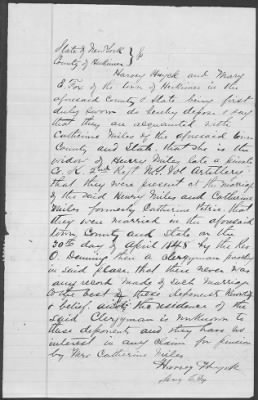 State of New York
County of Herkimer } ss
Harvey Huyck and Mary
E. Fox of the town of Herkimer in the
aforesaid County & State being first
duly sworn do hereby depose & say
that they are acquainted with
Catherine Miles of the aforesaid town
County and State, that she is the
widow of Henry Miles late a private
Co. K. 2nd Regt N.Y. Vol Artillery
that they were present at the marriage
of the said Henry Miles and Catherine
Miles formerly Catherine Petrie that
they were married in the aforesaid
town County and State on the
30th day of April 1848 by the Rev
O. Deming then a clergyman
in said place, that there never was
any record made of such marriage
to the best of these deponents knowledge
& belief. and the residence of the
said Clergyman is unknown to
these deponents and they have no
interest in any claim for pension
by Mrs Catherine Miles
Harvey Huyck
Mary E. Fox